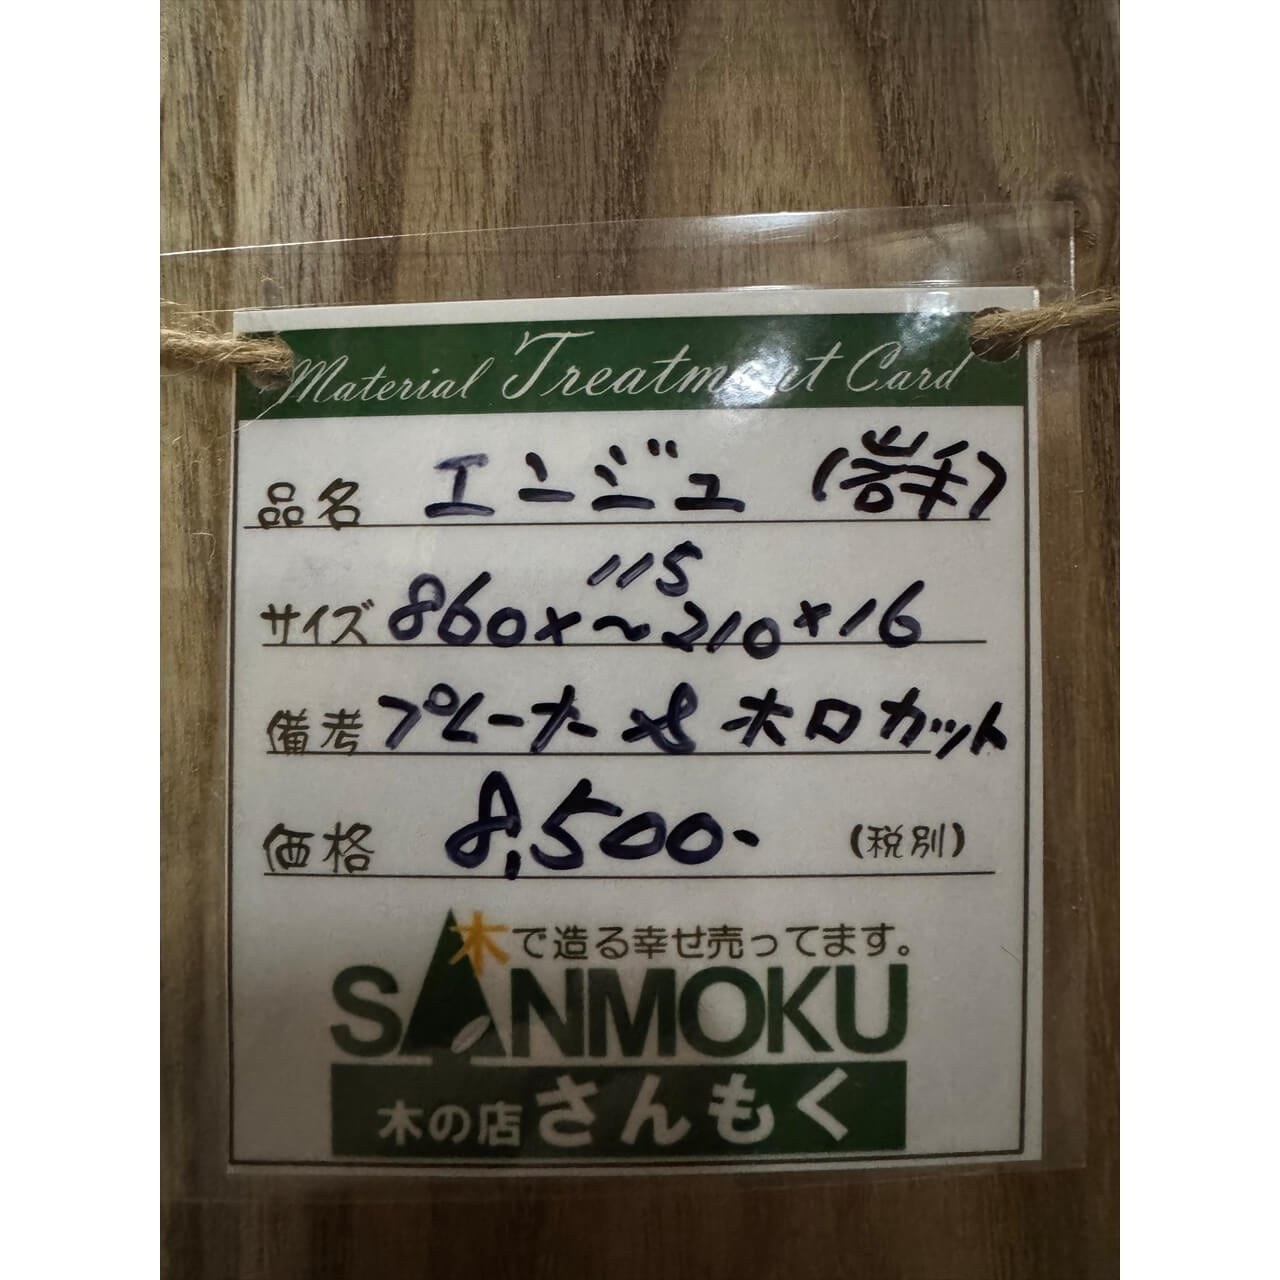 Material Treatment Card
品名 エンジュ (岩手)
サイズ 860×115~210×16
備考 プレーナー & ホロカット
価格 8,500- (税別)
木で造る幸せ売ってます。
SANMOKU
木の店 さんもく